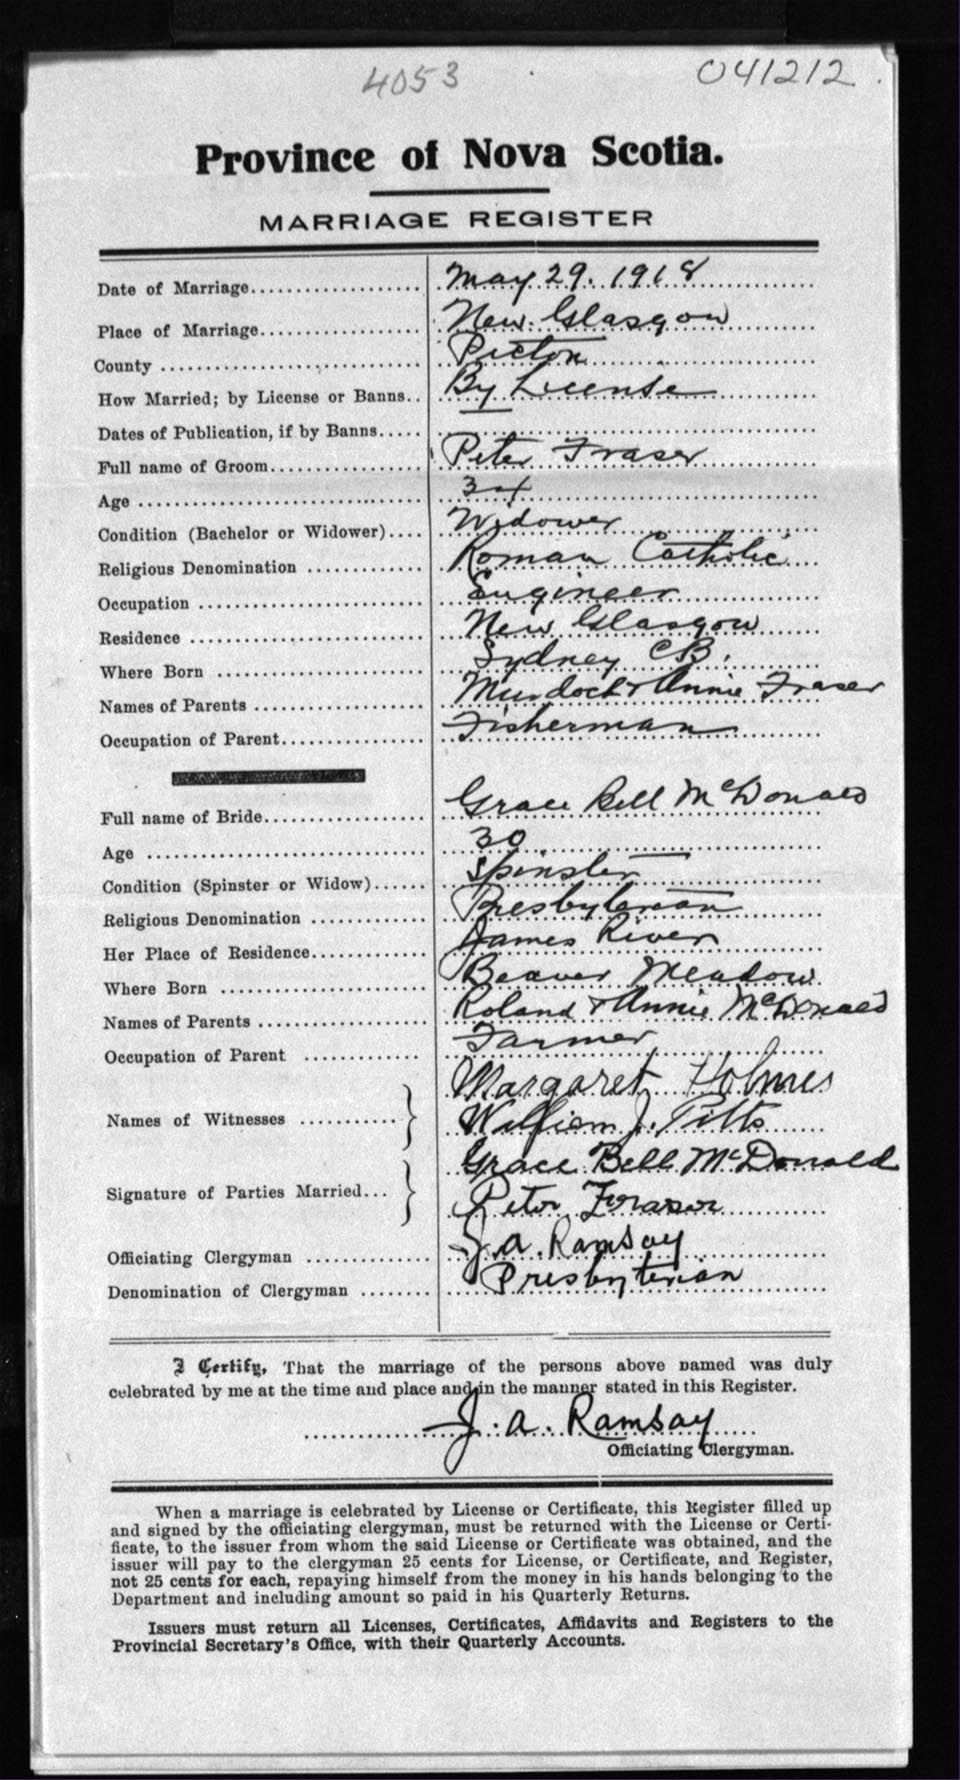 4053
041212
Province of Nova Scotia.
MARRIAGE REGISTER
Date of Marriage May 29. 1918
Place of Marriage New Glasgow
County Pictou
How Married; by License or Banns By License
Dates of Publication, if by Banns —
Full name of Groom Peter Fraser
Age 34
Condition (Bachelor or Widower) Widower
Religious Denomination Roman Catholic
Occupation Engineer
Residence New Glasgow
Where Born Sydney CB.
Names of Parents Murdoch & Annie Fraser
Occupation of Parent Fisherman
Full name of Bride Grace Bell McDonald
Age 30
Condition (Spinster or Widow) Spinster
Religious Denomination Presbyterian
Her Place of Residence James River
Where Born Beaver Meadow
Names of Parents Roland & Annie McDonald
Occupation of Parent Farmer
Names of Witnesses Margaret Holmes
William J. Titts
Signature of Parties Married Grace Bell McDonald
Peter Fraser
Officiating Clergyman J. A. Ramsay
Denomination of Clergyman Presbyterian
I Certify, That the marriage of the persons above named was duly
celebrated by me at the time and place and in the manner stated in this Register.
J. A. Ramsay
Officiating Clergyman.
When a marriage is celebrated by License or Certificate, this Register filled up
and signed by the officiating clergyman, must be returned with the License or Certi-
ficate, to the issuer from whom the said License or Certificate was obtained, and the
issuer will pay to the clergyman 25 cents for License, or Certificate, and Register,
not 25 cents for each, repaying himself from the money in his hands belonging to the
Department and including amount so paid in his Quarterly Returns.
Issuers must return all Licenses, Certificates, Affidavits and Registers to the
Provincial Secretary's Office, with their Quarterly Accounts.